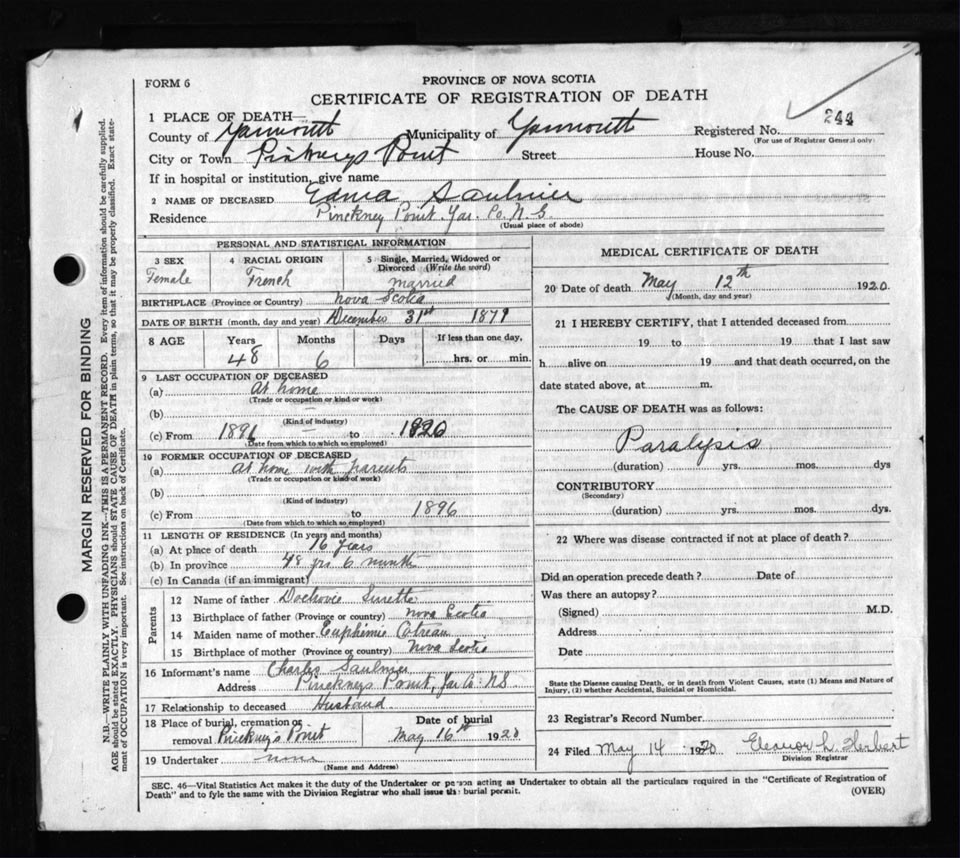 FORM 6
PROVINCE OF NOVA SCOTIA
CERTIFICATE OF REGISTRATION OF DEATH
1 PLACE OF DEATH—
County of Yarmouth Municipality of Yarmouth Registered No. 244
(For use of Registrar General only)
City or Town Pinkneys Point Street House No.
If in hospital or institution, give name
2 NAME OF DECEASED Edna Saulnier
Residence Pinckney Point. Yar. Co. N.S.
(Usual place of abode)
MARGIN RESERVED FOR BINDING
N.B.—WRITE PLAINLY WITH UNFADING INK—THIS IS A PERMANENT RECORD. Every item of information should be carefully supplied.
AGE should be stated EXACTLY. PHYSICIANS should STATE CAUSE OF DEATH in plain terms, so that it may be properly classified. Exact statement of OCCUPATION is very important. See instructions on back of Certificate.
PERSONAL AND STATISTICAL INFORMATION
3 SEX 4 RACIAL ORIGIN 5 Single, Married, Widowed or
Divorced (Write the word)
Female French married
BIRTHPLACE (Province or Country) Nova Scotia
DATE OF BIRTH (month, day and year) December 31st 1871
8 AGE Years Months Days If less than one day,
48 6 hrs. or min.
9 LAST OCCUPATION OF DECEASED
(a) At home
(Trade or occupation or kind or work)
(b)
(Kind of industry)
(c) From 1896 to 1920
(Date from which to which so employed)
10 FORMER OCCUPATION OF DECEASED
(a) At home with parents
(Trade or occupation or kind of work)
(b)
(Kind of industry)
(c) From to 1896
(Date from which to which so employed)
11 LENGTH OF RESIDENCE (In years and months)
(a) At place of death 16 years
(b) In province 48 yrs 6 months
(c) In Canada (if an immigrant)
Parents
12 Name of father Surette
13 Birthplace of father (Province or country) Nova Scotia
14 Maiden name of mother Euphemie Cotreau
15 Birthplace of mother (Province or country) Nova Scotia
16 Informant's name Charles Saulnier
Address Pinckneys Point, Yar Co. NS
17 Relationship to deceased Husband
18 Place of burial, cremation or Date of burial
removal Pinckney's Point May 16th 1920
19 Undertaker none
(Name and Address)
MEDICAL CERTIFICATE OF DEATH
20 Date of death May 12th 1920
(Month, day and year)
21 I HEREBY CERTIFY, that I attended deceased from
19 to 19 that I last saw
h alive on 19 and that death occurred, on the
date stated above, at m.
The CAUSE OF DEATH was as follows:
Paralysis
(duration) yrs. mos. dys
CONTRIBUTORY
(Secondary)
(duration) yrs. mos. dys.
22 Where was disease contracted if not at place of death?
Did an operation precede death? Date of
Was there an autopsy?
(Signed) M.D.
Address
Date
State the Disease causing Death, or in death from Violent Causes, state (1) Means and Nature of
Injury, (2) whether Accidental, Suicidal or Homicidal.
23 Registrar's Record Number
24 Filed May 14 1920 Eleanor L. Herbert
Division Registrar
SEC. 46—Vital Statistics Act makes it the duty of the Undertaker or person acting as Undertaker to obtain all the particulars required in the "Certificate of Registration of
Death" and to fyle the same with the Division Registrar who shall issue the burial permit. (OVER)